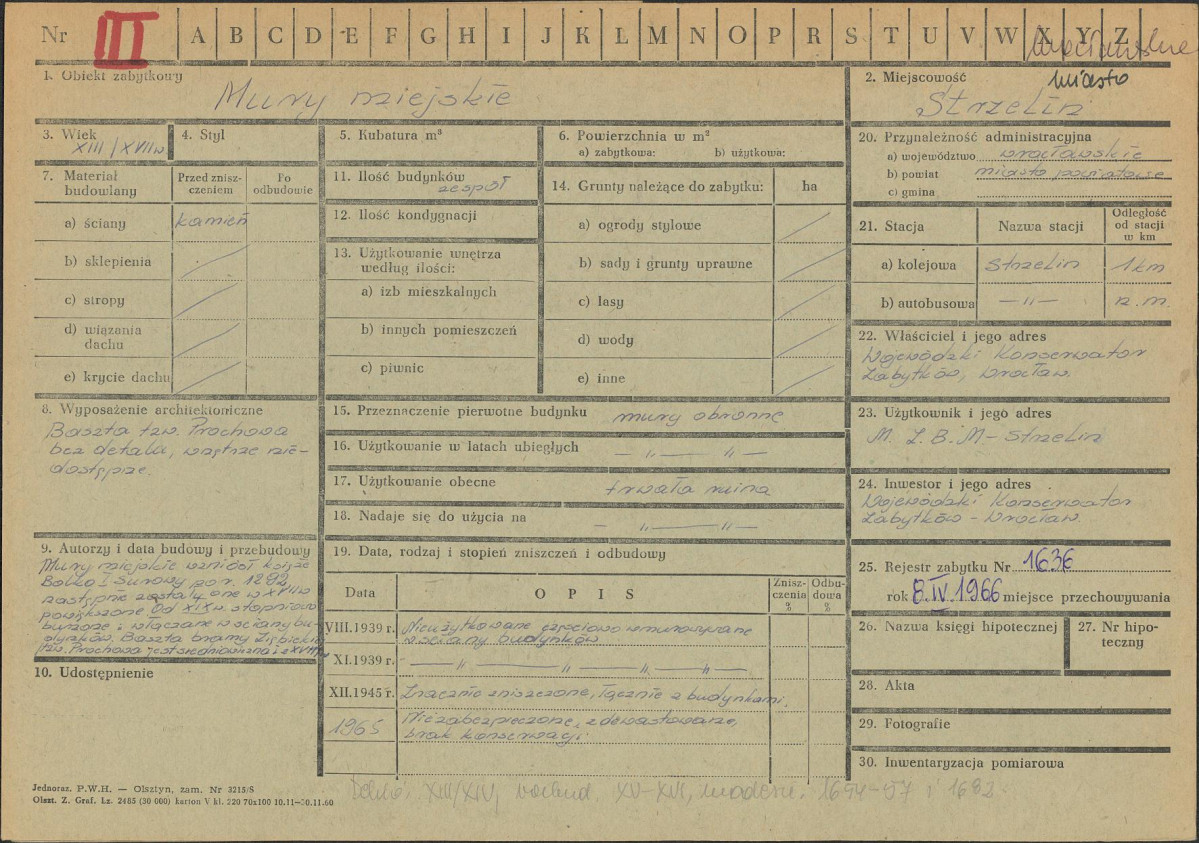 Nr III A B C D E F G H I J K L M N O P R S T U V W X Y Z
1. Obiekt zabytkowy
Mury miejskie
2. Miejscowość
miasto
Strzelin
3. Wiek
XIII/XVIIw
4. Styl
5. Kubatura m³
6. Powierzchnia w m²
a) zabytkowa: b) użytkowa:
7. Materiał budowlany
Przed zniszczeniem
Po odbudowie
a) ściany kamień
b) sklepienia
c) stropy
d) wiązania dachu
e) krycie dachu
8. Wyposażenie architektoniczne
Baszta tzw. Prochowa
bez detalu, wnętrze nie-
dostępne.
9. Autorzy i data budowy i przebudowy
Mury miejskie wzniósł książe
Bolko I Surowy po r. 1292
następnie zostały one w XVIIw
powiększone od XIXw. stopniowo
burzone i włączane w ściany bu-
dynków. Baszta bramy Ziębickiej
tzw. Prochowa jest średniowieczna i z XVIIw
10. Udostępnienie
11. Ilość budynków
zespół
12. Ilość kondygnacji
13. Użytkowanie wnętrza
według ilości:
a) izb mieszkalnych
b) innych pomieszczeń
c) piwnic
14. Grunty należące do zabytku: ha
a) ogrody stylowe
b) sady i grunty uprawne
c) lasy
d) wody
e) inne
15. Przeznaczenie pierwotne budynku mury obronne
16. Użytkowanie w latach ubiegłych — „ — „ —
17. Użytkowanie obecne trwała ruina
18. Nadaje się do użycia na — „ — „ —
19. Data, rodzaj i stopień zniszczeń i odbudowy
Data O P I S Zniszczenia % Odbudowa %
VIII.1939 r. Nieużytkowane częściowo wmurowywane
w ściany budynków
XI.1939 r. — „ — „ — „ — „ —
XII.1945 r. Znacznie zniszczone, łącznie z budynkami.
1965 Niezabezpieczone, zdewastowane,
brak konserwacji
20. Przynależność administracyjna
a) województwo wrocławskie
b) powiat miasto powiatowe
c) gmina
21. Stacja Nazwa stacji Odległość od stacji w km
a) kolejowa Strzelin 1 km
b) autobusowa — „ — n.m.
22. Właściciel i jego adres
Wojewódzki Konserwator
Zabytków, Wrocław.
23. Użytkownik i jego adres
M. Z. B. M - Strzelin
24. Inwestor i jego adres
Wojewódzki Konserwator
Zabytków - Wrocław
25. Rejestr zabytku Nr 1636
rok 8.IV.1966 miejsce przechowywania
26. Nazwa księgi hipotecznej
27. Nr hipoteczny
28. Akta
29. Fotografie
30. Inwentaryzacja pomiarowa
Jednoraz. P.W.H. — Olsztyn, zam. Nr 3215/S
Olszt. Z. Graf. Lz. 2485 (30 000) karton V kl. 220 70x100 10.11—30.11.60
XIII/XIV, rozbud. XV-XVI, modern. 1694-57 i 1682